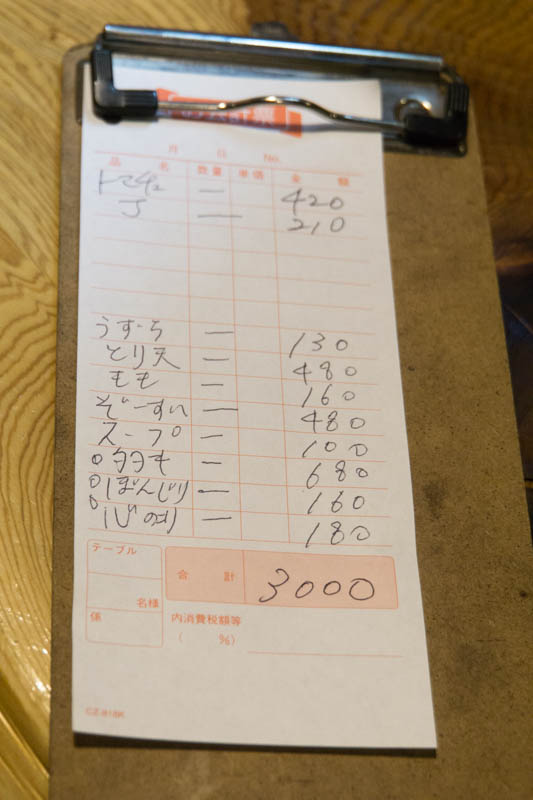 月 日 No.
品 名 数量 単価 金 額
トマチュ 一 420
J 一 210
うずら 一 130
とり天 一 480
もも 一 160
ぞーすい 一 480
スープ 一 100
タタキ 一 680
ぼんじり 一 160
一 180
テーブル
名様
係
合 計 3000
内消費税額等
( %)